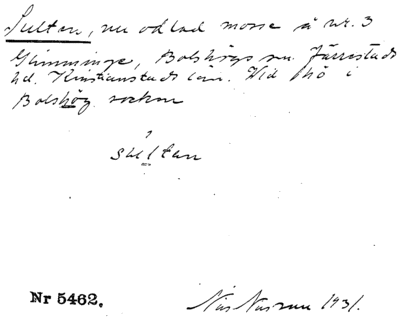 Sulten, nu odlad mosse å nr. 3
Glimminge, Bolshögs sn. Järrestads
hd. Kristianstads län. Vid ö i
Bolshög socken
sultan
Nr 5462.
Nils 1931.